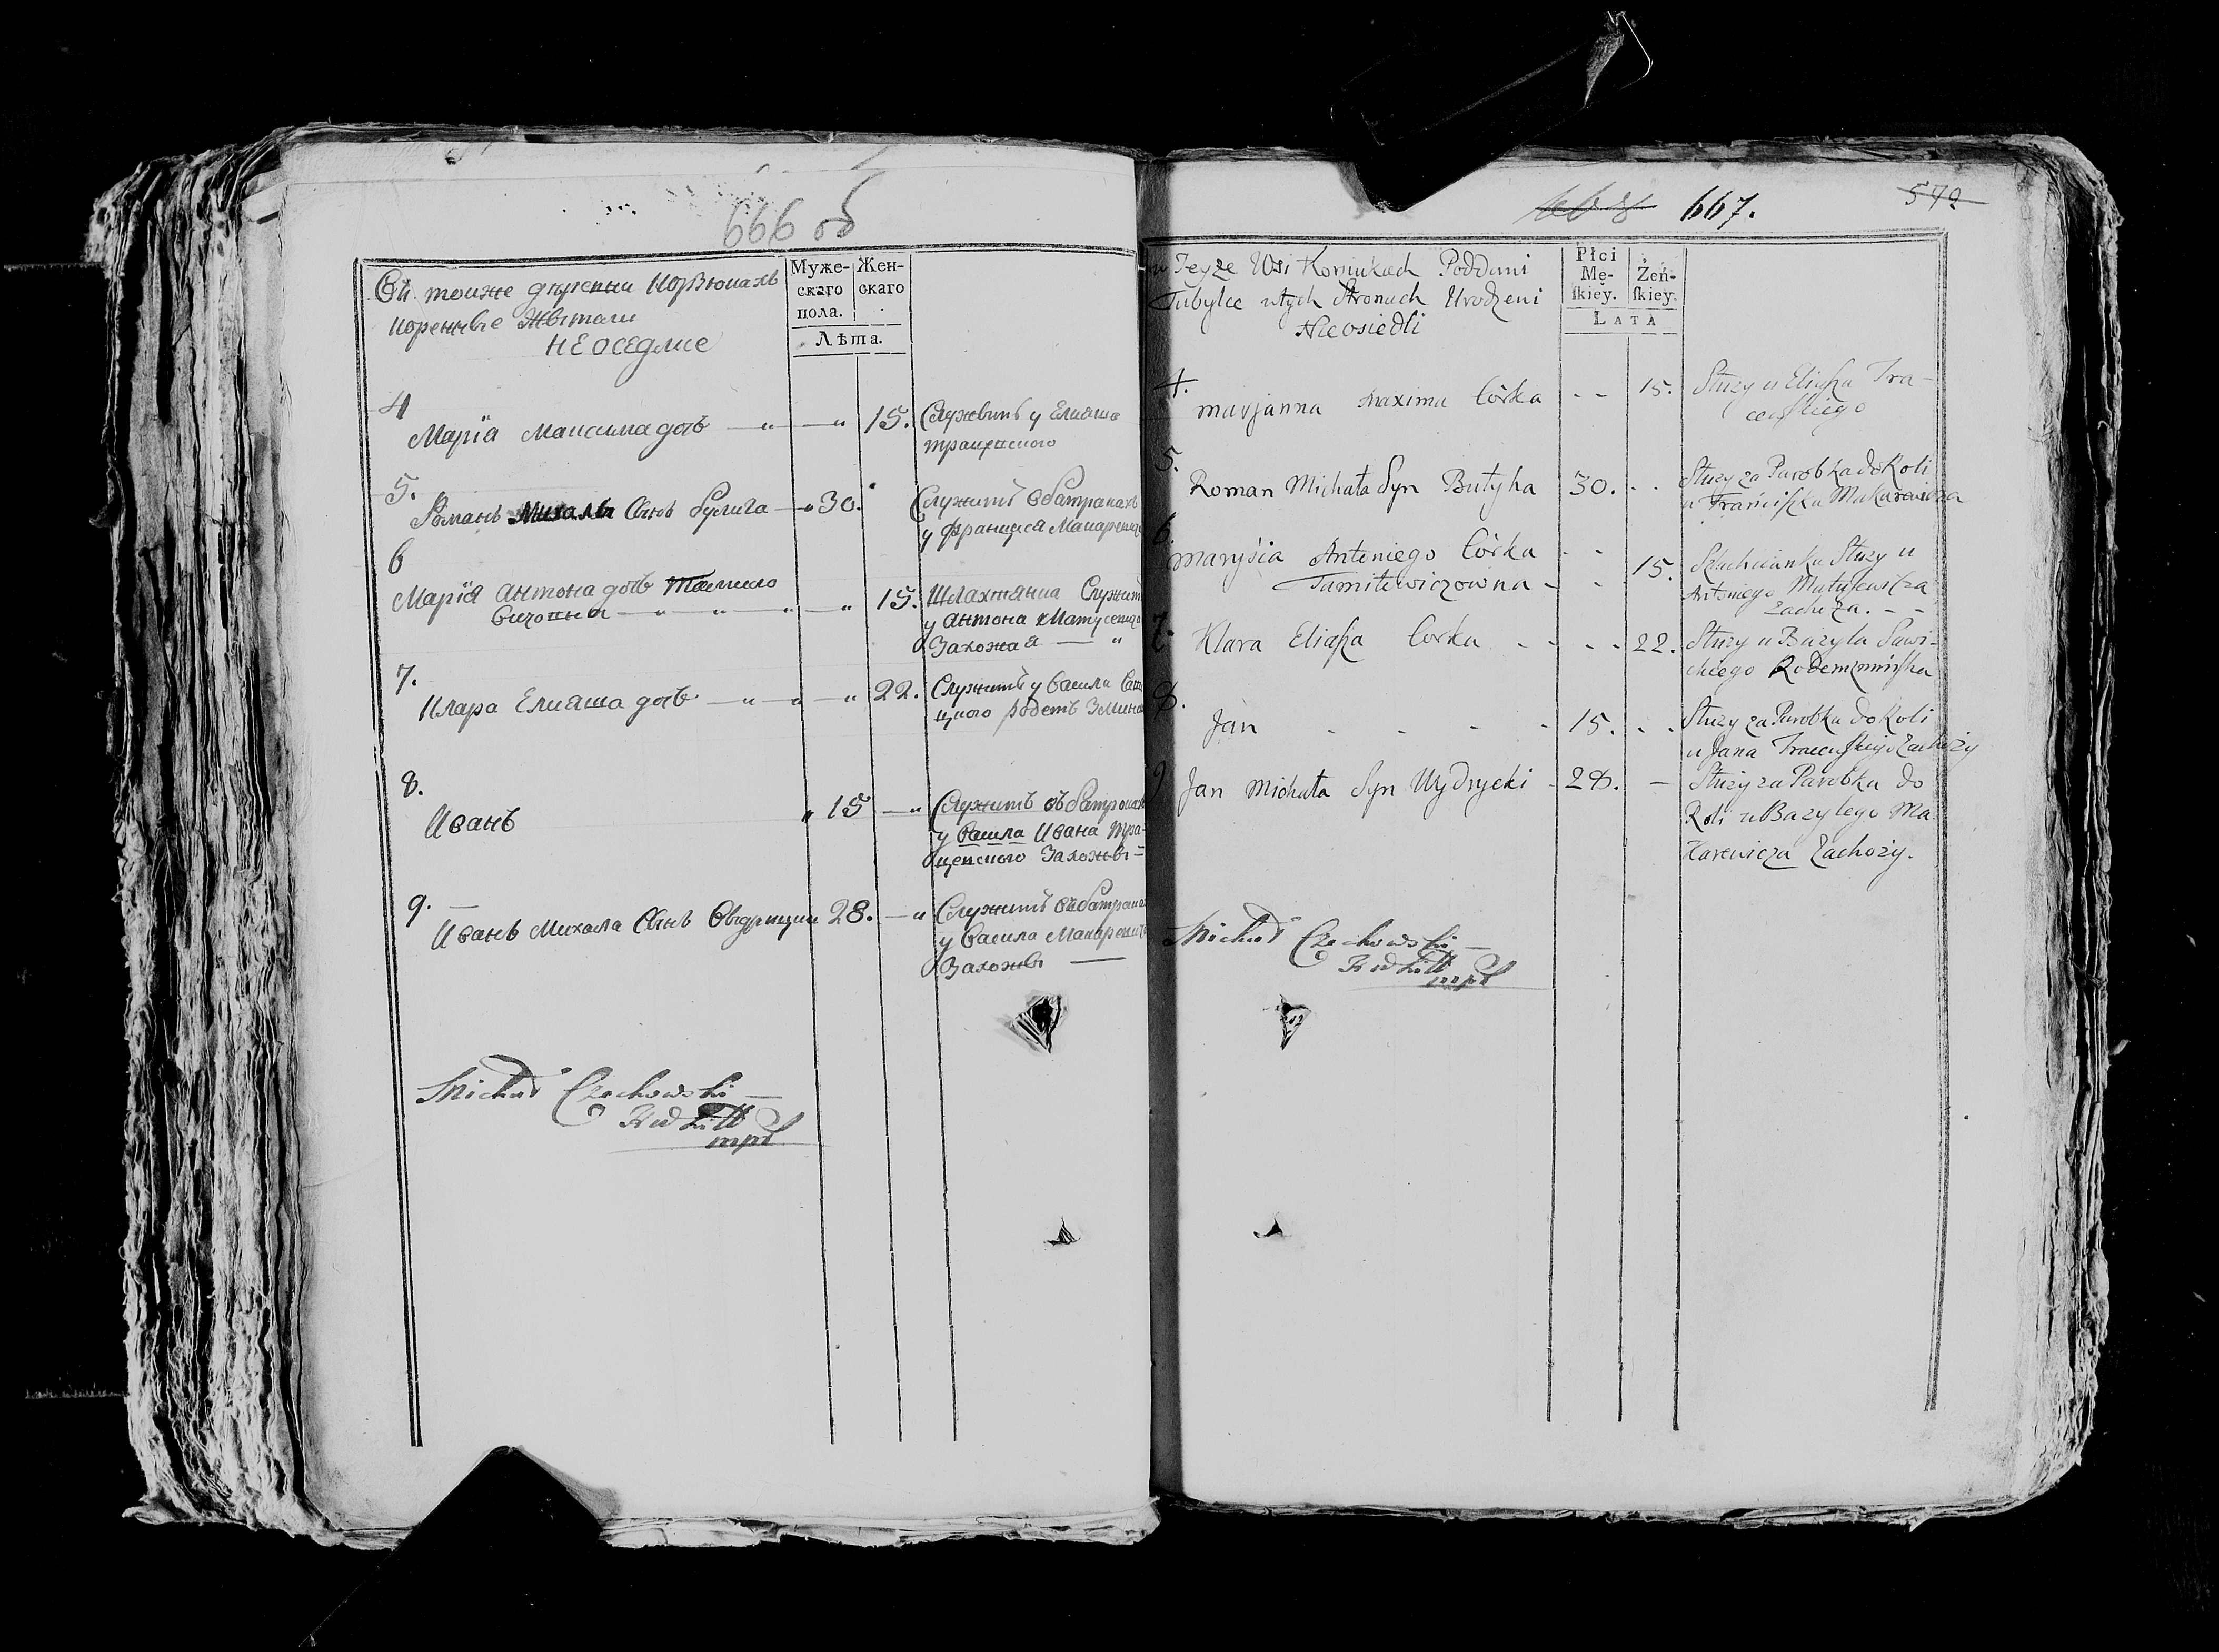 666 об
Въ тойже деревни Корвюкахъ
коренные Жвiтели
НЕ ОСЕДЛИЕ
Муже-
скаго
пола.
Жен-
скаго
Лѣта.
4
Марїа Максима дочь 15. Служвитъ у Елиаша
Трацевского
5.
Романъ Михала Сынъ Булига 30. Служитъ в батракахъ
у Франциса Макаревича
6
Марїа Антона дочь Тамило
вичовна 15. Шляхтянка Служит
у Антона Матусевича
Захожая
7.
Клара Елиаша дочь 22. Служитъ у Васила Сави
цкого родетъ Земянка
8.
Иванъ 15 Служитъ въ батраках
у Васила Ивана Тра-
цевского Захожвi
9.
Иванъ Михала Сынъ Выдрицки 28. Служитъ въ батраках
у Васила Макаревича
Захожвi
Michał Czechowski
mpr
667. 572
w Teyże Wsi Korwiukach Poddani
Tubylce w tych Stronach Urodzeni
Nieosiedli
Płci
Mę-
ſkiey.
Żeń-
ſkiey.
LATA
4.
Marjanna Maxima Córka - - 15. Służy u Eliaſza Tra-
cewſkiego
5.
Roman Michała Syn Bułyha 30. - - Służy za Parobka do Roli
u Franciſzka Makarewicza
6.
Marysia Antoniego Córka - -
Tamiłewiczowna - - 15. Szlachcianka Służy u
Antoniego Matuſewicza
Zachoża. - -
7.
Klara Eliaſza Corka - - - - 22. Służy u Bazyla Sawi-
ckiego Rodem
8.
Jan - - - - 15. - - Służy za Parobka do Roli
u Jana Tracewſkiego Zachoży
9 Jan Michała Syn Wydrycki - 28. - Służy za Parobka do
Roli u Bazylego Ma
karewicza Zachoży.
Michał Czechowski
mpr